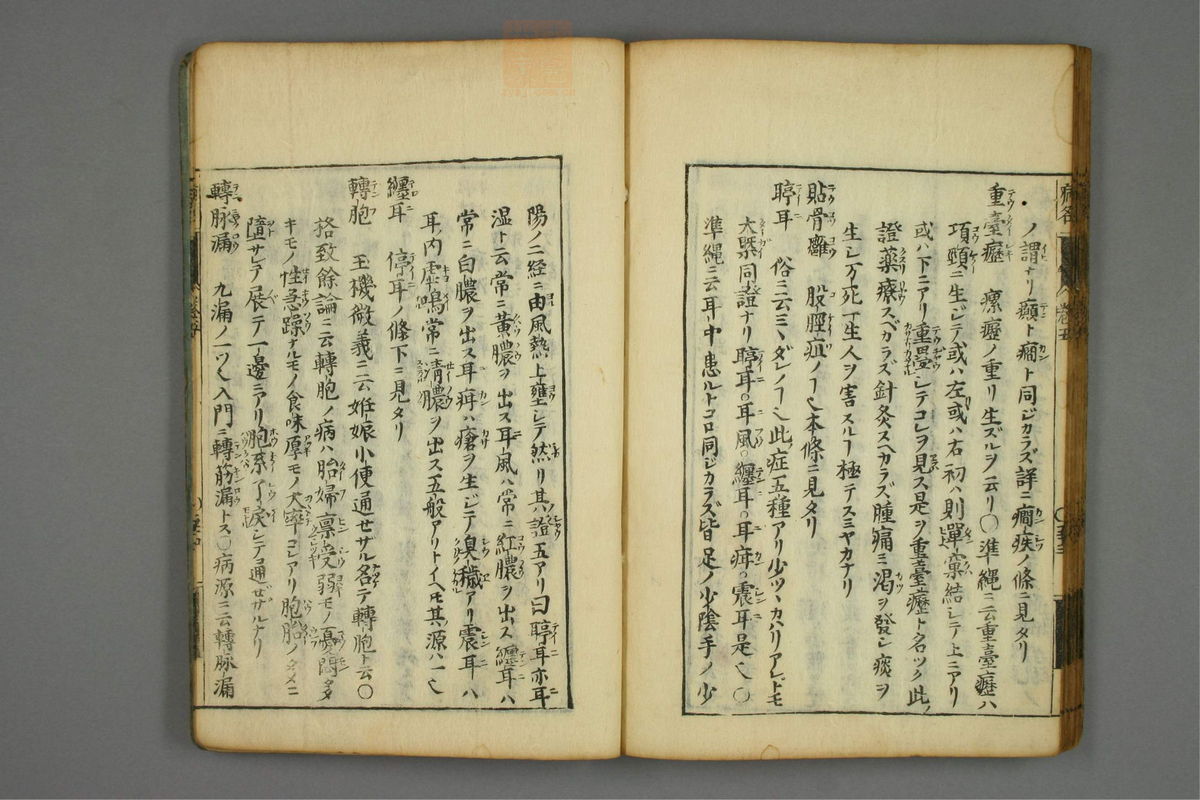 ノ謂ナリ癲ト癇ト同ジカラズ詳ニ癇疾ノ條ニ見タリ
重臺癧　瘰癧ノ重リ生ズルヲ云リ〇準縄ニ云重臺癧ハ
項頸ニ生ジテ或ハ左或ハ右初ハ則單窠結シテ上ニアリ
或ハ下ニアリ重疊シテコレヲ見ス是ヲ重臺癧ト名ツク此
證藥療スベカラズ針灸スヘカラズ腫痛ニ渇ヲ發シ痰ヲ
生レ万死一生人ヲ害スルヿ極テスミヤカナリ
貼骨癰　股脛疽ノヿ也本條ニ見タリ
聤耳　俗ニ云ミヽダレノヿ也此症五種アリ少ツヽカハリアレドモ
大槩同證ナリ聤耳〇耳風〇纏耳〇耳疳〇震耳是也〇
準縄ニ云耳中患ルトコロ同ジカラズ皆足ノ少陰手ノ少
陽ノ二經ニ由風熱上壅シテ然リ其證五アリ曰聤耳亦耳
湿ト云常ニ黄膿ヲ出ス耳風ハ常ニ紅膿ヲ出ス纏耳ハ
常ニ白膿ヲ出ス耳疳ハ瘡ヲ生ジテ臭穢アリ震耳ハ
耳ノ内虚鳴常ニ清膿ヲ出ス五般アリトイヘ𪜈其源ハ一也
纏耳　停耳ノ條下ニ見タリ
轉胞　玉機微義ニ云姙娠小便通セザル名テ轉胞ト云〇
格致餘論ニ云轉胞ノ病ハ胎婦禀受弱モノ憂悶多
キモノ性急躁ナルモノ食味厚モノ大率コレアリ胞胎ノタメニ
墮サレテ展テ一邊ニアリ胞系了戻シテ通ぜザルナリ
轉脉漏　九漏ノ一ツ也入門ニ轉筋漏トス〇病源ニ云轉脉漏
病名